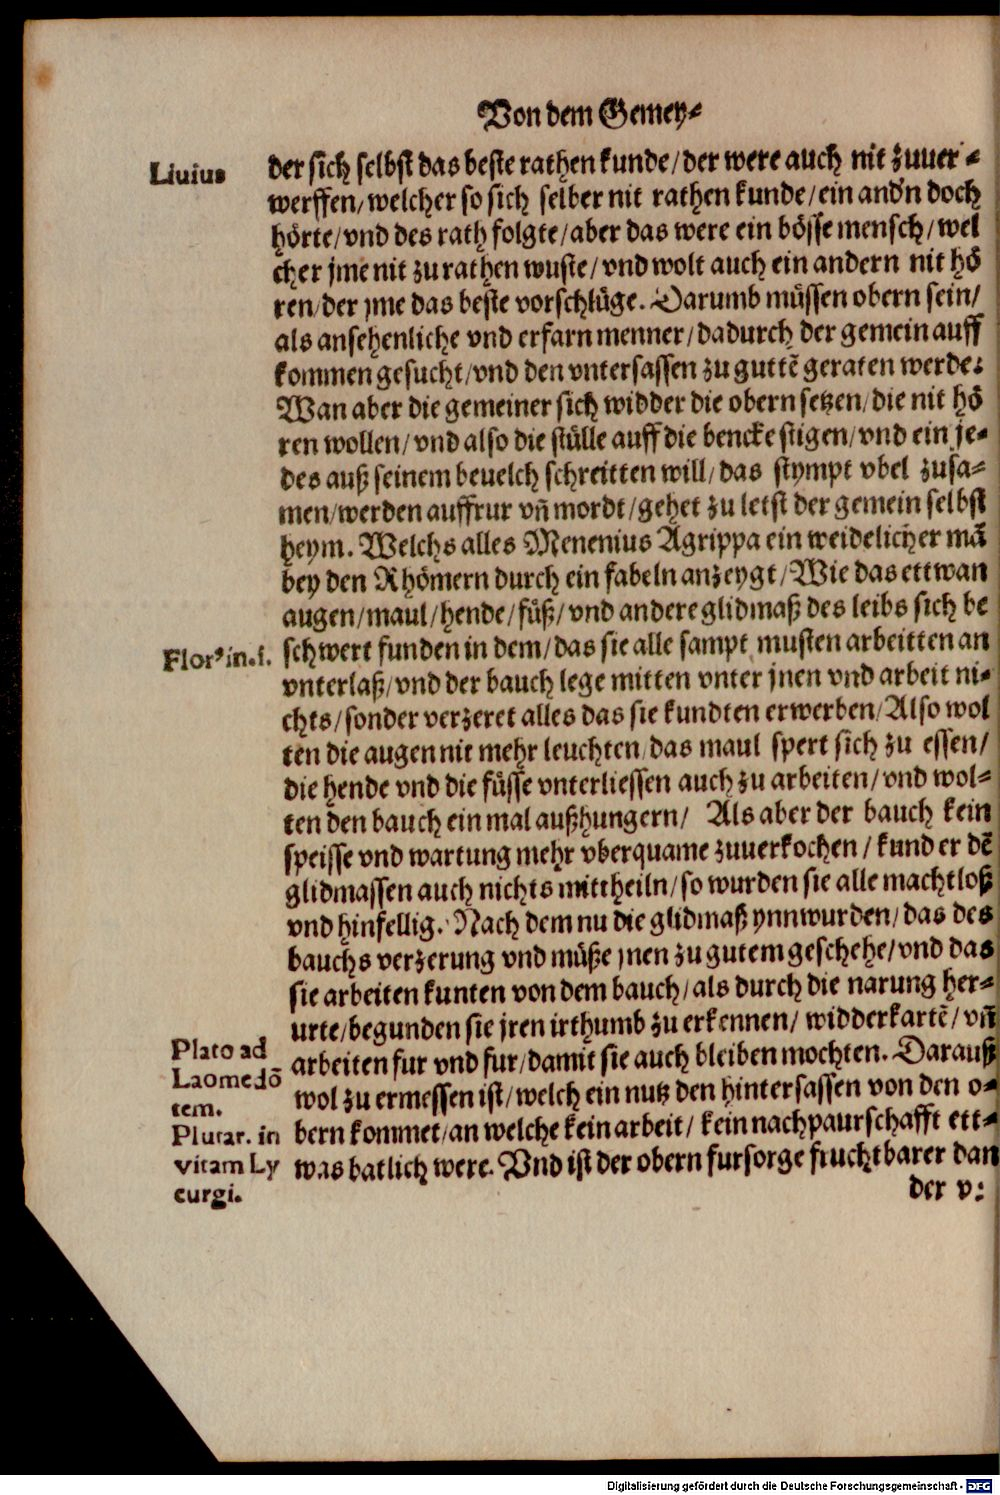 Von dem Gemey-
Liuius
der sich selbst das beste rathen kunde/der were auch nit zuuer-
werffen/welcher so sich selber nit rathen kunde/ein and'n doch
hörte/vnd des rath folgte/aber das were ein bösse mensch/wel
cher jme nit zu rathen wuste/vnd wolt auch ein andern nit hö
ren/der jme das beste vorschlüge. Darumb müssen obern sein/
als ansehenliche vnd erfarn menner/dadurch der gemein auff
kommen gesucht/vnd den vntersassen zu guttẽ geraten werde:
Wan aber die gemeiner sich widder die obern setzen/die nit hö
ren wollen/vnd also die stülle auff die bencke stigen/vnd ein je-
des auß seinem beuelch schreitten will/das stympt vbel zusa-
men/werden auffrur vñ mordt/gehet zu letst der gemein selbst
heym. Welchs alles Menenius Agrippa ein weidelicher mã
bey den Rhömern durch ein fabeln anzeygt/Wie das ettwan
augen/maul/hende/füß/vnd andere glidmaß des leibs sich be
Flor⁹ in.1.
schwert funden in dem/das sie alle sampt musten arbeitten an
vnterlaß/vnd der bauch lege mitten vnter jnen vnd arbeit ni-
chts/sonder verzeret alles das sie kundten erwerben/Also wol
ten die augen nit mehr leuchten/das maul spert sich zu essen/
die hende vnd die füsse vnterliessen auch zu arbeiten/vnd wol-
ten den bauch ein mal außhungern/ Als aber der bauch kein
speisse vnd wartung mehr vberquame zuuerkochen/kund er dẽ
glidmassen auch nichts mittheiln/so wurden sie alle machtloß
vnd hinfellig. Nach dem nu die glidmaß ynnwurden/das des
bauchs verzerung vnd müße jnen zu gutem geschehe/vnd das
sie arbeiten kunten von dem bauch/als durch die narung her-
urte/begunden sie jren irthumb zu erkennen/widderkartẽ/vñ
Plato ad
Laomedõ
tem.
Plutar. in
vitam Ly
curgi.
arbeiten fur vnd fur/damit sie auch bleiben mochten. Darauß
wol zu ermessen ist/welch ein nutz den hintersassen von den o-
bern kommet/an welche kein arbeit/kein nachpaurschafft ett-
was batlich were. Vnd ist der obern fursorge fruchtbarer dan
der v:
Digitalisierung gefördert durch die Deutsche Forschungsgemeinschaft - DFG